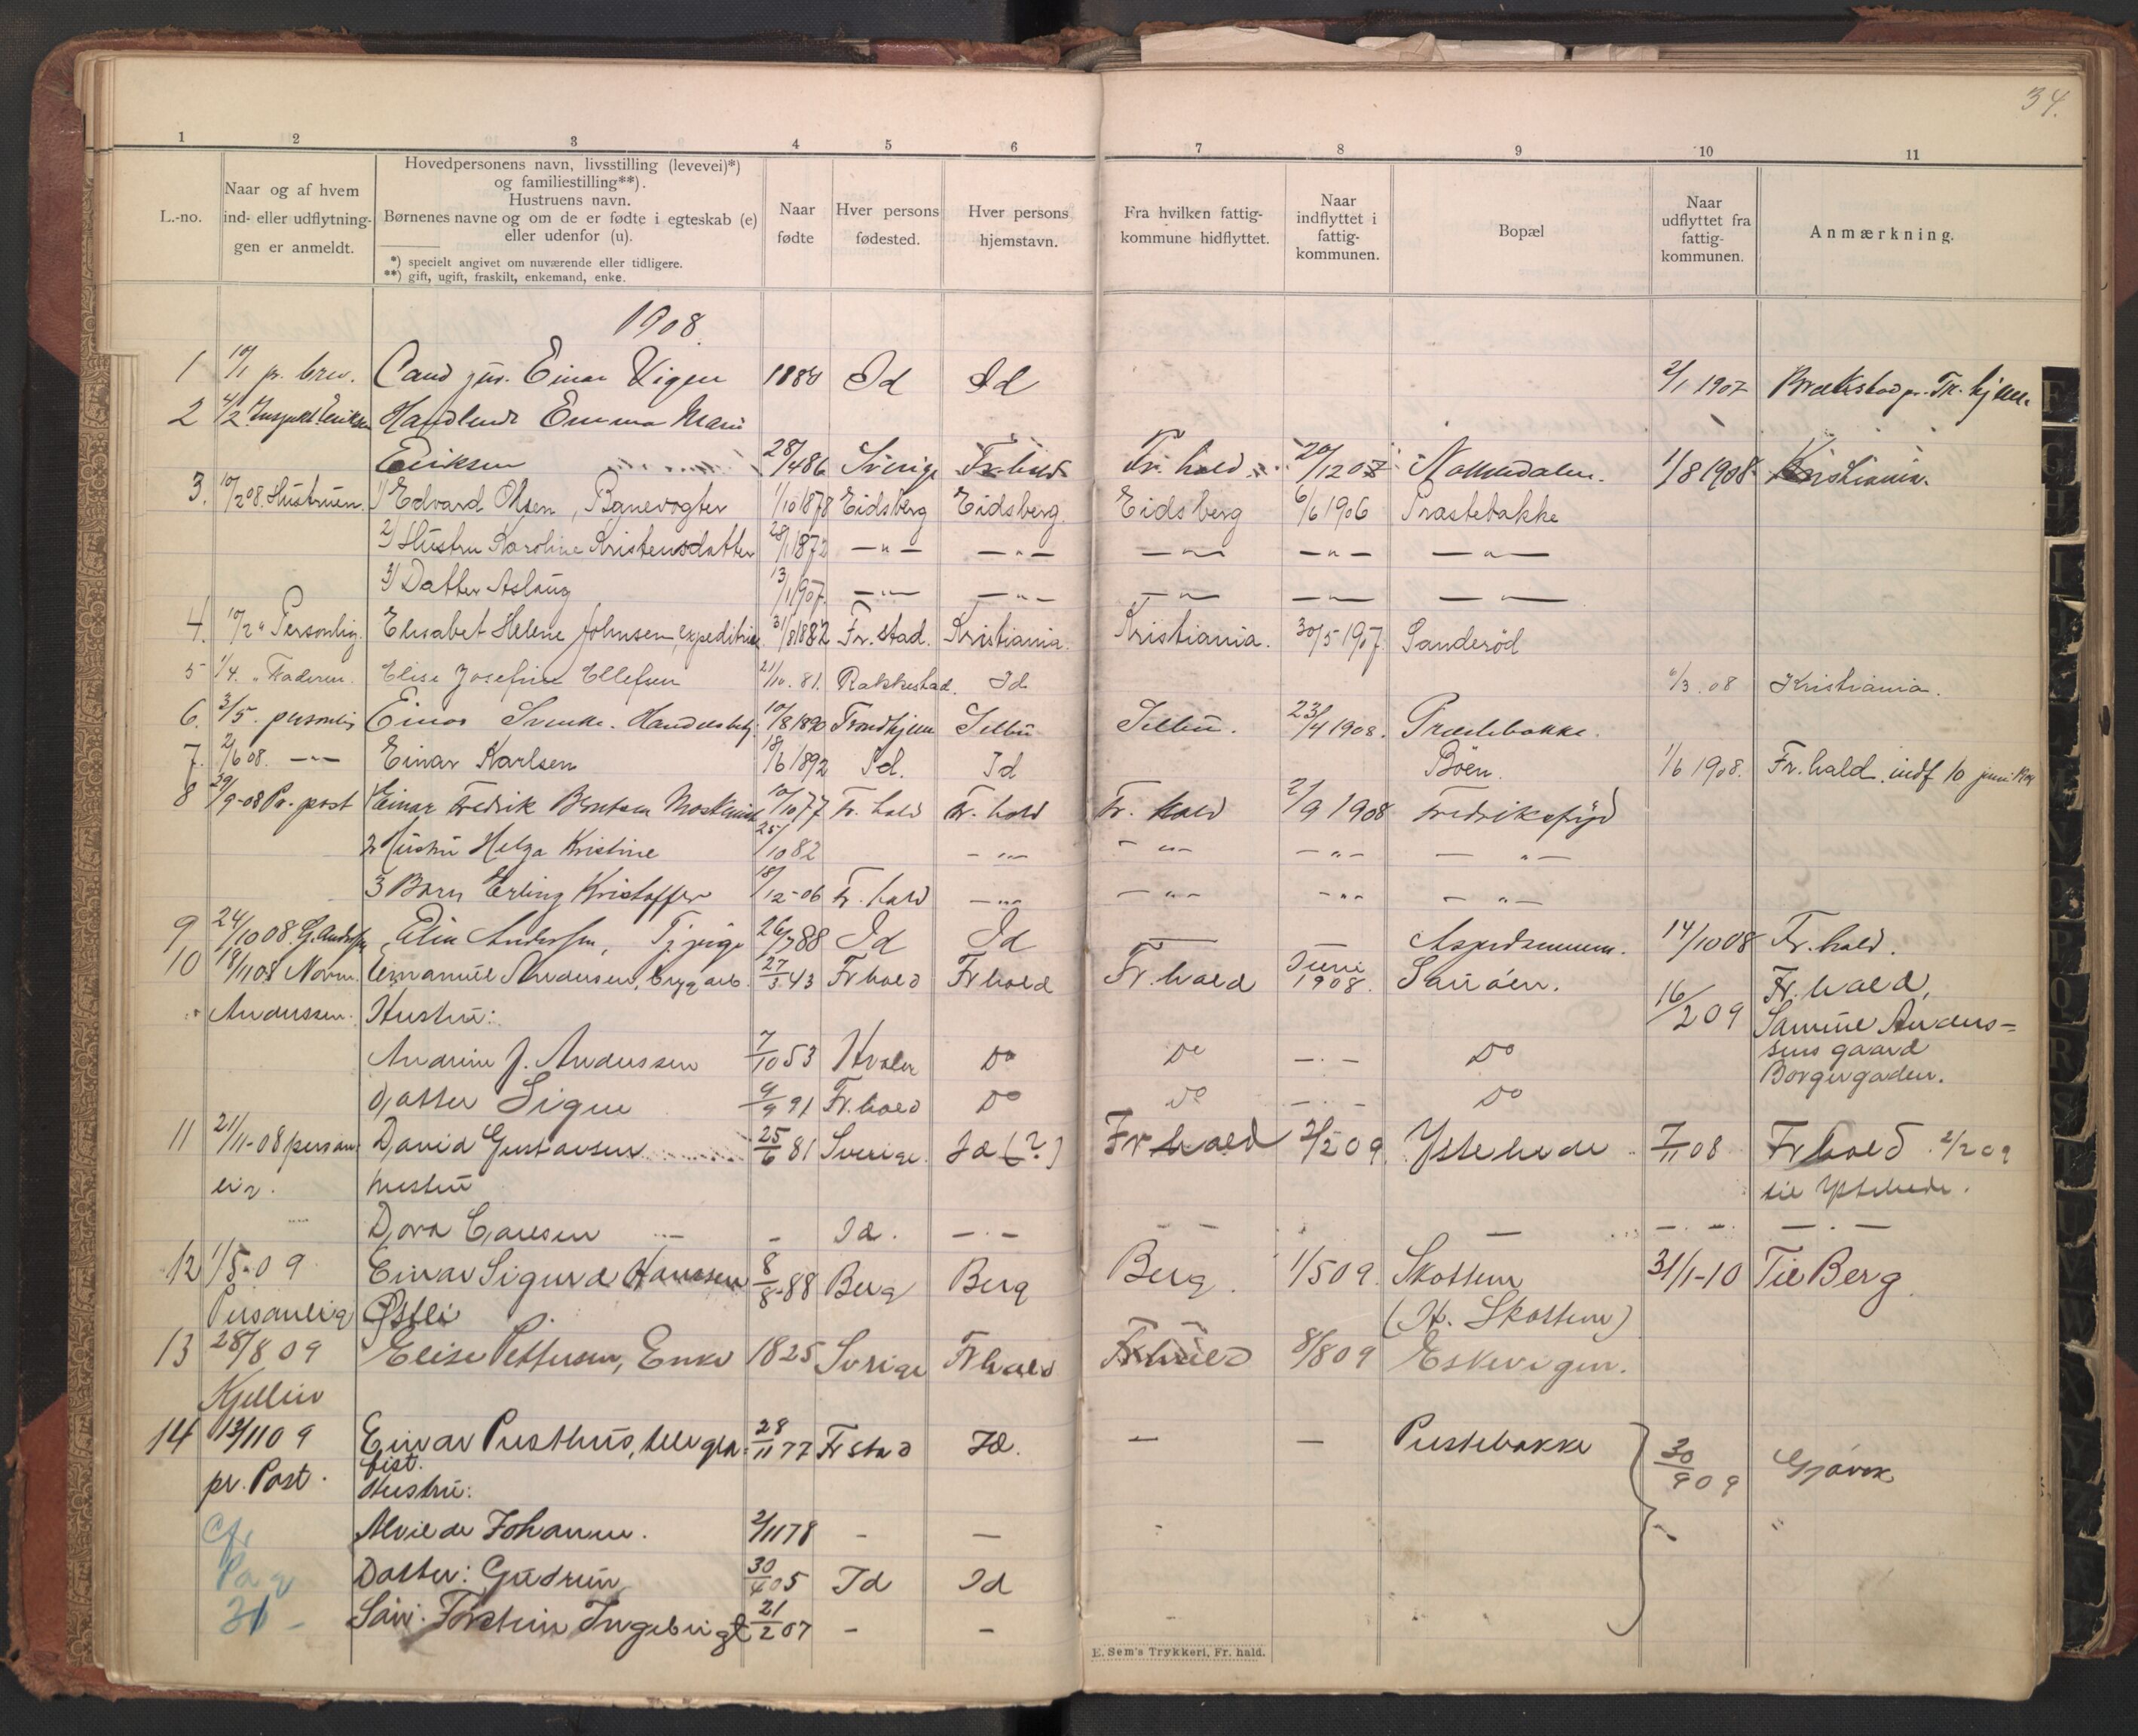 34.
1 2 3 4 5 6 7 8 9 10 11
L.-no.
Naar og af hvem
ind- eller udflytnin-
gen er anmeldt.
Hovedpersonens navn, livsstilling (levevei)*)
og familiestilling**).
Hustruens navn.
Børnenes navne og om de er fødte i egteskab (e)
eller udenfor (u).
*) specielt angivet om nuværende eller tidligere.
**) gift, ugift, fraskilt, enkemand, enke.
Naar
fødte
Hver persons
fødested.
Hver persons
hjemstavn.
Fra hvilken fattig-
kommune hidflyttet.
Naar
indflyttet i
fattig-
kommunen.
Bopæl
Naar
udflyttet fra
fattig-
kommunen.
Anmærkning.
1908.
1 10/1 pr. brev. Cand jur. Einar Vigen 1880 Id Id 2/1 1907 pr. Tr.hjem.
2 4/2 Handlende Emma Marie
Eriksen 28/4 86 Sverige Fr.hald Fr. hald 20/12 07 1/8 1908 Kristiania.
3. 10/2 08. Hustruen. 1) Edvard Olsen, Banevogter 1/10 1878 Eidsberg Eidsberg. Eidsberg 6/6 1906 Prastebakke
2) Hustru Karoline Kristensdatter 28/1 1872 — " — — " — — " — — " — — " —
3) Datter Aslaug 13/1 1907. — " — — " — — " — — " — — " —
4. 10/2 " Personlig. Elisabet Helene Johnsen, expeditrice 31/8 1882 Fr. stad. Kristiania. Kristiania. 30/5 1907. Sanderöd
5 1/4. " Faderen. Elise Josefine Ellefsen 21/10. 81. Rakkestad. Id /3 . 08 Kristiania.
6. 3/5. personlig Einar Svenke. Handelsbetj. 10/8 1890 Trondhjem Selbu Selbu. 23/4 1908. Præstebakke.
7. 2/6 08. — " — Einar Karlsen 18/6 1892 Id. Id Böen. 1/6 1908. Fr. hald. indf 10 juni
8 29/9-08 Pr. post 1 Einar Fredrik Berntsen Maskinist 10/10 77 Fr. hald Fr. hald Fr. hald 2/9 1908 Fredriksfryd
2 Hustru Helga Kristine 25/10 82 — " — — " — — " — — " —
3 Barn Erling Kristoffer 18/12-06 Fr. hald — " — — " — — " — — " —
9 24/10 08. G. Andersen Elin Andersen, Tj.pige 26/7 88 Id Id — Aspedammen. 14/10 08 Fr. hald.
10 18/11 08 Norm. Emanuel Andersen, brygarb. 27/3 43 Fr hald Fr hald Fr. hald Juni 1908. Sauöen. 16/2 09 Fr. hald,
Anderssen. Hustru: Samuel Anders-
Andrine J. Anderssen 7/10 53 Hvaler Do Do — . — Do sens gaard
Datter Signe 9/9 91 Fr. hald Do Do — . — Do Borgergaden.
11 21/11-08 person David Gustavsen 25/6 81 Sverige Id (?) Fr hald 2/2 09 Ystehede 7/11 08 Fr hald . 2/2 09
lig. hustru til Ystehede.
Dora Carlsen — — Id. — . — — — — — . — — . —
12 1/5-09 Einar Sigurd Hanssen 8/8-88 Berg Berg Berg. 1/5 09. Skottene 31/1-10 Til Berg
Personlig Østli (H. Skottene)
13 28/8 09 Elise Pettersen, Enke 1825 Sverige Fr hald Fr hald 8/8 09 Eskevigen.
Kjellin
14 13/11 09 Einar Præsthus, telegra- 28/11 77 Fr stad Id. — — Prestebakke 30/9 09 Gjøvik
fist.
pr. Post. Hustru:
Cfr Alvilde Johanne. 2/11 78 — — — "
Pag Datter: Gudrun 30/4 05 Id Id
31 — Søn: Torstein Ingebrigt 21/2 07 — —
E. Sem's Trykkeri, Fr. hald.